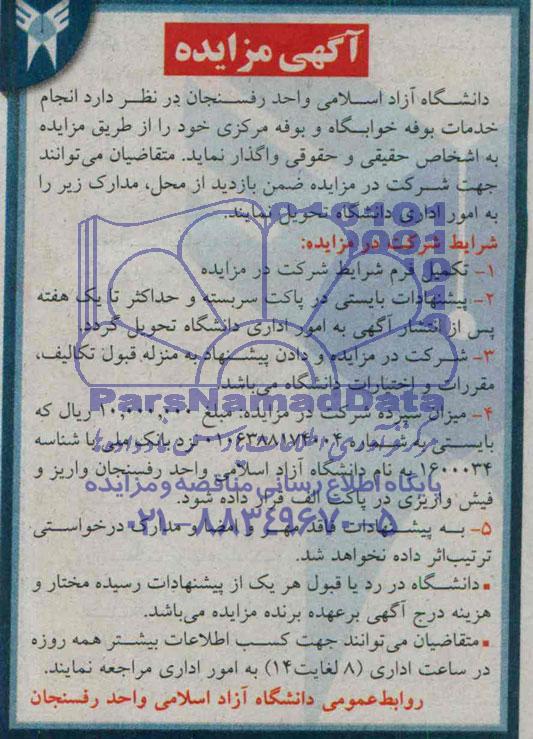 آگهی مزایده
دانشگاه آزاد اسلامی واحد رفسنجان در نظر دارد انجام
خدمات بوفه خوابگاه و بوفه مرکزی خود را از طریق مزایده
به اشخاص حقیقی و حقوقی واگذار نماید. متقاضیان می‌توانند
جهت شرکت در مزایده ضمن بازدید از محل، مدارک زیر را
به امور اداری دانشگاه تحویل نمایند.
شرایط شرکت در مزایده:
۱- تکمیل فرم شرایط شرکت در مزایده
۲- پیشنهادات بایستی در پاکت سربسته و حداکثر تا یک هفته
پس از انتشار آگهی به امور اداری دانشگاه تحویل گردد.
۳- شرکت در مزایده و دادن پیشنهاد به منزله قبول تکالیف،
مقررات و اختیارات دانشگاه می‌باشد.
ParsNamadData
۴- میزان سپرده شرکت در مزایده: مبلغ ۱۰,۰۰۰,۰۰۰ ریال که
بایستی به شماره ۰۱۰۶۳۸۸۱۷۴۰۰۴ نزد بانک ملی با شناسه
۱۶۰۰۰۳۴ به نام دانشگاه آزاد اسلامی واحد رفسنجان واریز و
پایگاه اطلاع رسانی مناقصه و مزایده
فیش واریزی در پاکت الف قرار داده شود.
۰۲۱-۸۸۳۴۹۶۷۰-۵
۵- به پیشنهادات فاقد مهر و امضا و مدارک درخواستی
ترتیب‌اثر داده نخواهد شد.
▪ دانشگاه در رد یا قبول هر یک از پیشنهادات رسیده مختار و
هزینه درج آگهی برعهده برنده مزایده می‌باشد.
▪ متقاضیان می‌توانند جهت کسب اطلاعات بیشتر همه روزه
در ساعت اداری (۸ لغایت۱۴) به امور اداری مراجعه نمایند.
روابط‌عمومی دانشگاه آزاد اسلامی واحد رفسنجان